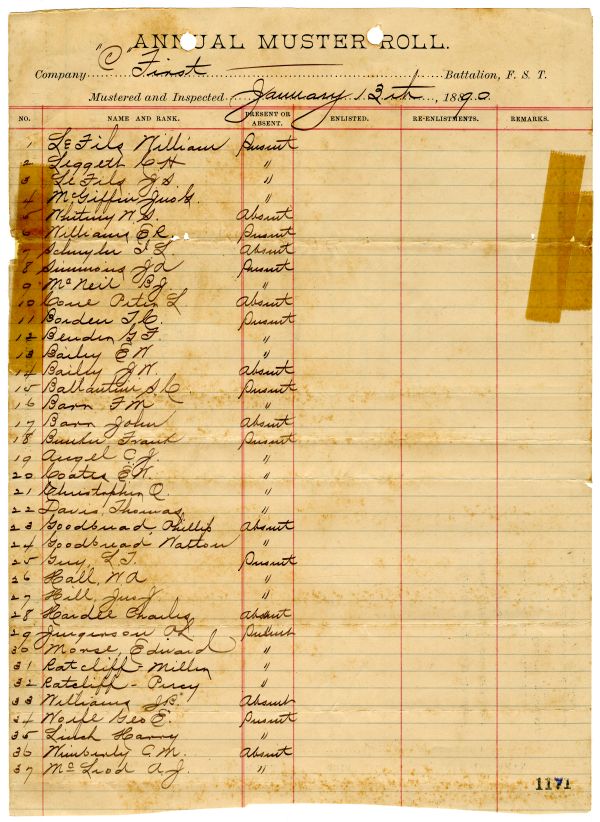 ANNUAL MUSTER ROLL.
Company "C" First Battalion, F. S. T.
Mustered and Inspected January 13th, 1890.
NO. NAME AND RANK. PRESENT OR ABSENT. ENLISTED. RE-ENLISTMENTS. REMARKS.
1 Le Fils William Present
2 Leggett C H "
3 Le Fils J S. "
4 McGiffin Jas G. "
5 Whitney W S. Absent
6 Williams E R. Present
7 Schuyler F L. Absent
8 Simmons J A Present
9 McNeil B J. "
10 Cone Peter L Absent
11 Borden T. C. Present
12 G F. "
13 Baily E W "
14 Baily J W. Absent
15 Ballantine S. C. Present
16 Barr F M "
17 Barr John Absent
18 Frank Present
19 Angel C. J. "
20 Coates E. W. "
21 Christopher Q. "
22 Davis, Thomas, "
23 Goodbread, Phillip Absent
24 Goodbread Watton "
25 Guy, L T. Present
26 Hall, W A "
27 Hill, Jas J. "
28 Hardee Charles Absent
29 Present
30 Morse, Edward "
31 Ratcliff - Miller "
32 Ratcliff - Percy "
33 Williams J B. Absent
34 Wolfe Geo E. Present
35 Linch Harry "
36 Wimberly C. M. Absent
37 Mc Leod A. J. "
1171